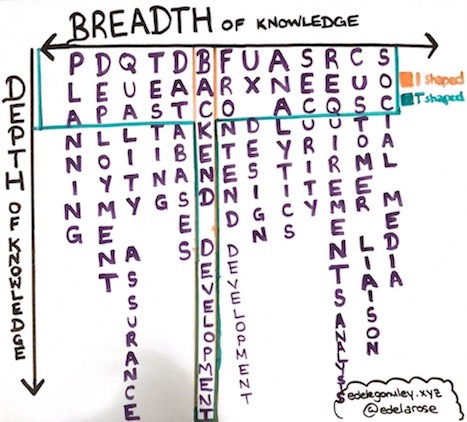 BREADTH OF KNOWLEDGE
DEPTH OF KNOWLEDGE
PLANNING
DEPLOYMENT
QUALITY ASSURANCE
TESTING
DATABASES
BACKEND DEVELOPMENT
FRONTEND DEVELOPMENT
UX DESIGN
ANALYTICS
SECURITY
REQUIREMENTS ANALYSIS
CUSTOMER LIAISON
SOCIAL MEDIA
I shaped
T shaped
edelegonuley.xyz
@edelarose